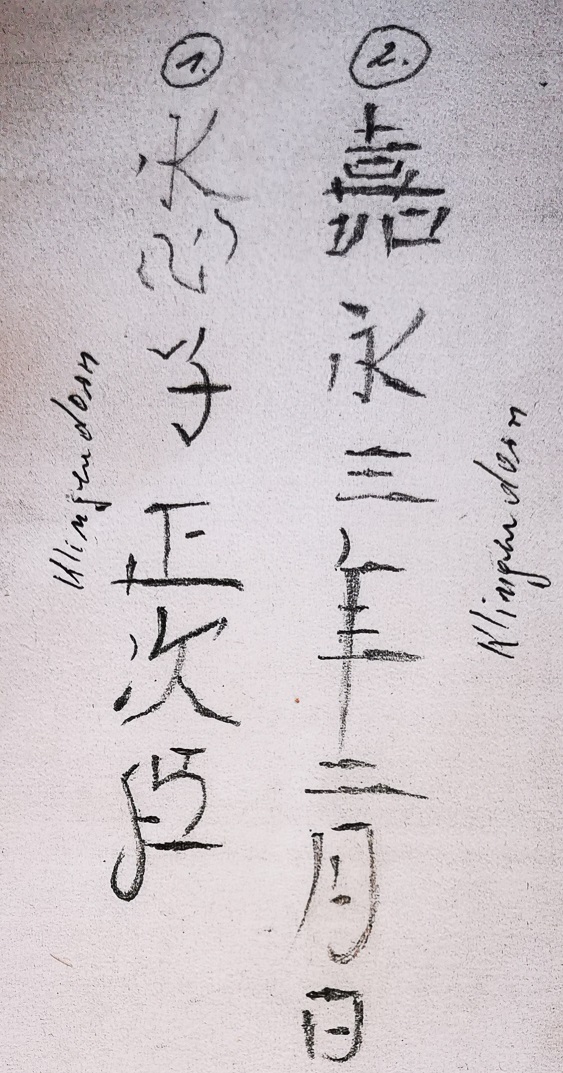 ①.
水心子正次
Klingendorn
②.
嘉永三年二月日
Klingendorn